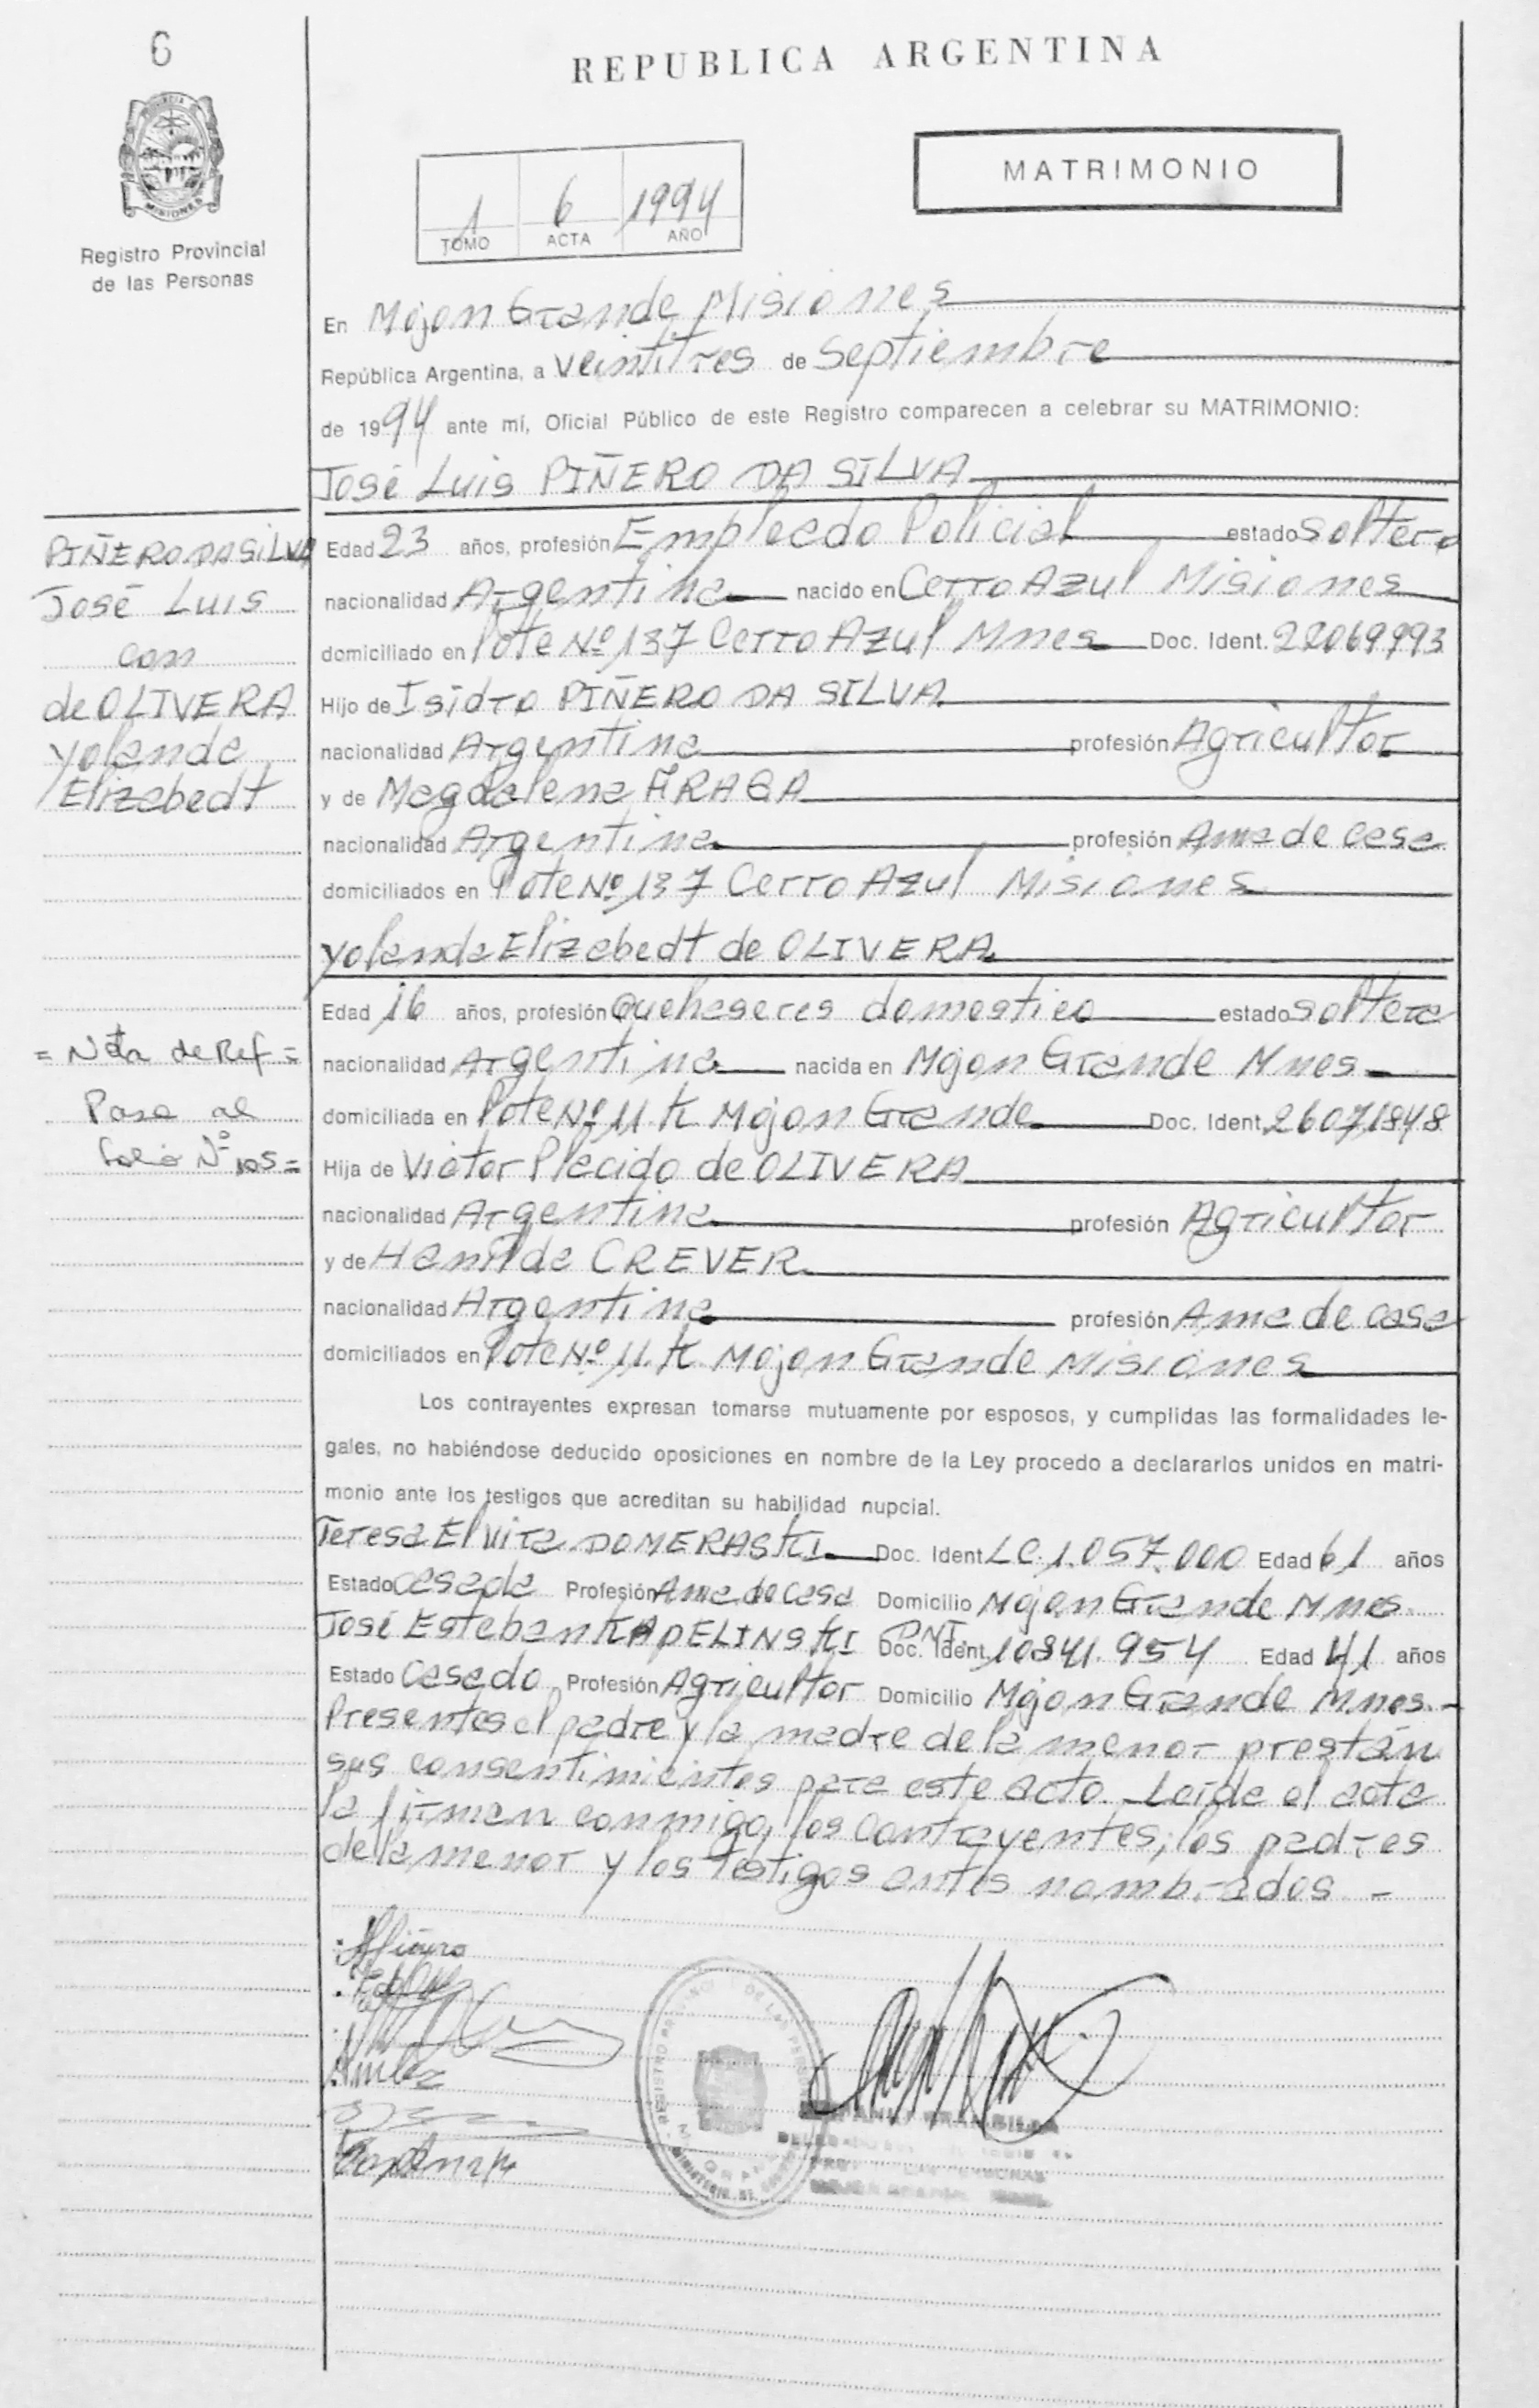 6
REPUBLICA ARGENTINA
MISIONES
Registro Provincial
de las Personas
1 6 1994
TOMO ACTA AÑO
MATRIMONIO
En Mojon Grande Misiones
República Argentina, a Veintitres de Septiembre
de 1994 ante mí, Oficial Público de este Registro comparecen a celebrar su MATRIMONIO:
José Luis PIÑERO DA SILVA
PIÑERO DA SILVA
José Luis
con
de OLIVERA
Yolanda
Elizabedt
Edad 23 años, profesión Empleado Policial estado Soltero
nacionalidad Argentina nacido en Cerro Azul Misiones
domiciliado en lote Nº 137 Cerro Azul Mnes Doc. Ident. 22069993
Hijo de Isidro PIÑERO DA SILVA
nacionalidad Argentina profesión Agricultor
y de Magdalena FRAGA
nacionalidad Argentina profesión Ama de casa
domiciliados en lote Nº 137 Cerro Azul Misiones
Yolanda Elizabedt de OLIVERA
Edad 16 años, profesión Quehaseres domestico estado Soltera
nacionalidad Argentina nacida en Mojon Grande Mnes
domiciliada en lote Nº 11 K Mojon Grande Doc. Ident. 26071848
= Nota de Ref =
Pasa al
folio Nº 105 =
Hija de Victor Placido de OLIVERA
nacionalidad Argentina profesión Agricultor
y de Hanilda CREVER
nacionalidad Argentina profesión Ama de casa
domiciliados en lote Nº 11. K. Mojon Grande Misiones
Los contrayentes expresan tomarse mutuamente por esposos, y cumplidas las formalidades le-
gales, no habiéndose deducido oposiciones en nombre de la Ley procedo a declararlos unidos en matri-
monio ante los testigos que acreditan su habilidad nupcial.
Teresa Elvira DOMERASKI Doc. Ident LC. 1.057.000 Edad 61 años
Estado casada Profesión Ama de casa Domicilio Mojon Grande Mnes.
José Esteban KAPELINSKI DNI. Doc. Ident. 10841.954 Edad 41 años
Estado Casado Profesión Agricultor Domicilio Mojon Grande Mnes.-
Presentes el padre y la madre de la menor prestán
sus consentimientos para este acto. Leída el acta
la firman conmigo, los contrayentes; los padres
de la menor y los testigos antes nombrados -